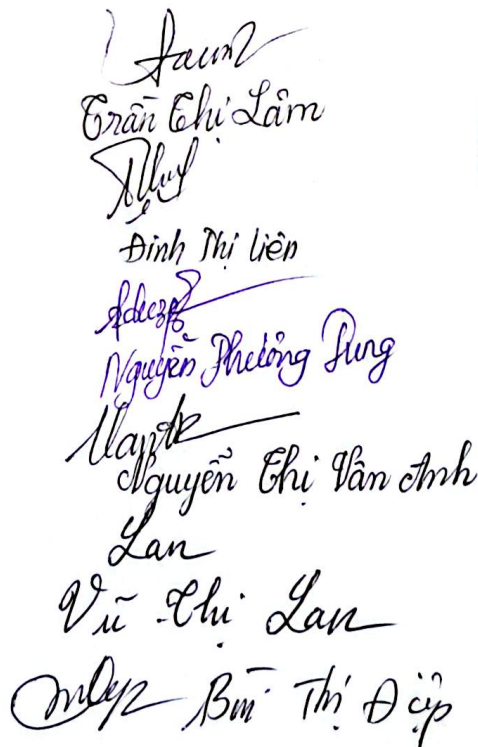 Trần Thị Lâm
Đinh Thị Liên
Nguyễn Phương Dung
Nguyễn Thị Vân Anh
Lan
Vũ Thị Lan
Bùi Thị Điệp